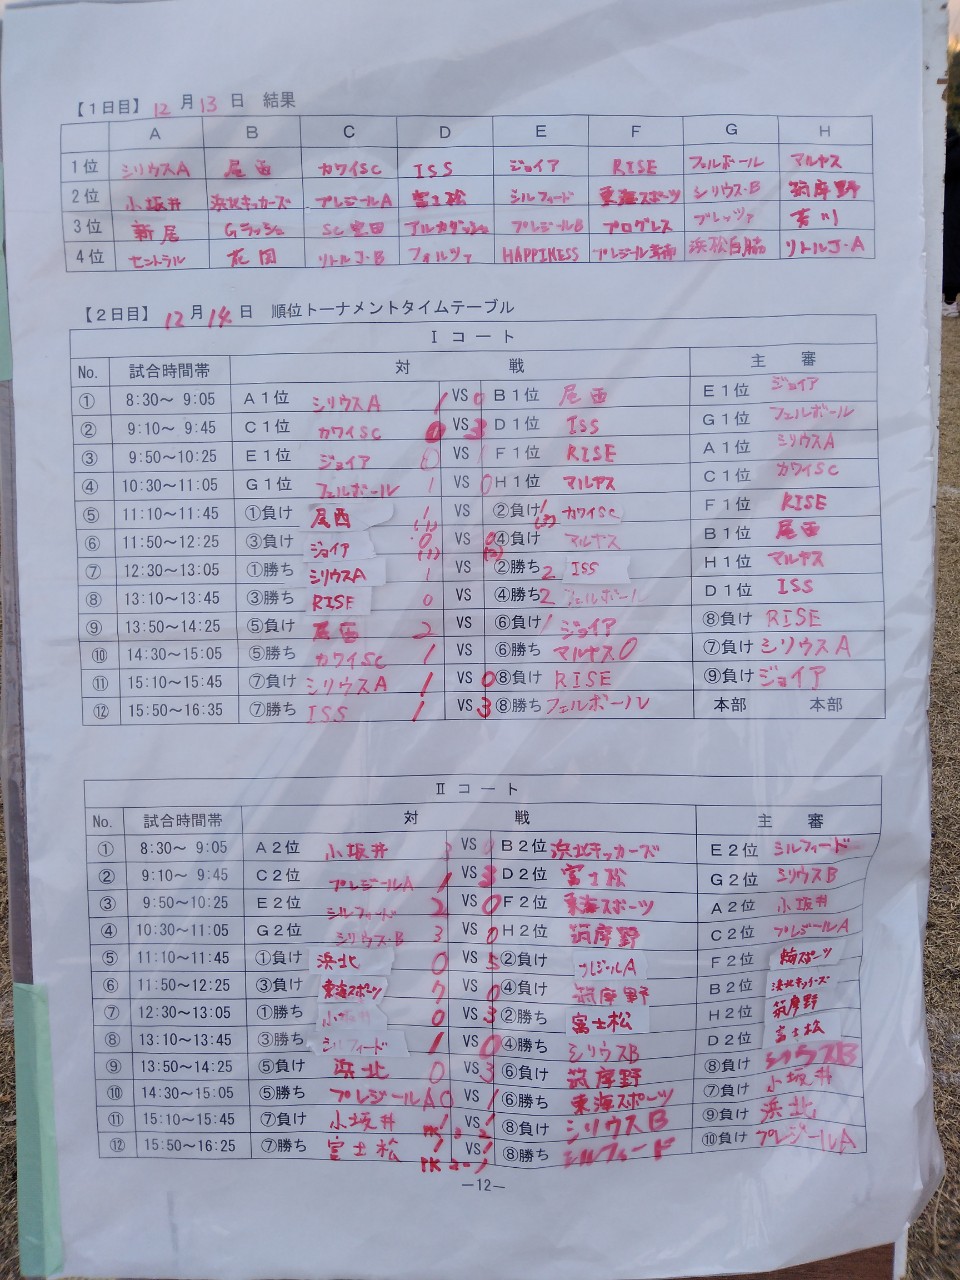 【1日目】 12 月 13 日 結果
A B C D E F G H
1位 シリウスA 尾西 カワイSC ISS ジョイア RISE フェルボール マルヤス
2位 小坂井 浜北キッカーズ プレジールA 富士松 シルフィード 東海スポーツ シリウス・B 筑摩野
3位 新居 Gラッシュ SC豊田 アルカダッシュ プレジールB プログレス ブレッツァ 吉川
4位 セントラル 花園 リトルJ・B フォルツァ HAPPINESS プレジール 浜松白脇 リトルJ・A
【2日目】 12 月 14 日 順位トーナメントタイムテーブル
Ⅰ コート
No. 試合時間帯 対 戦 主 審
① 8:30～ 9:05 A1位 シリウスA 1 VS 0 B1位 尾西 E1位 ジョイア
② 9:10～ 9:45 C1位 カワイSC 0 VS 3 D1位 ISS G1位 フェルボール
③ 9:50～10:25 E1位 ジョイア 0 VS 1 F1位 RISE A1位 シリウスA
④ 10:30～11:05 G1位 フェルボール 1 VS 0 H1位 マルヤス C1位 カワイSC
⑤ 11:10～11:45 ①負け 尾西 1 VS ②負け 1 カワイSC F1位 RISE
⑥ 11:50～12:25 ③負け ジョイア 0 VS 0 ④負け マルヤス B1位 尾西
⑦ 12:30～13:05 ①勝ち シリウスA 1 VS ②勝ち 2 ISS H1位 マルヤス
⑧ 13:10～13:45 ③勝ち RISE 0 VS ④勝ち 2 フェルボール D1位 ISS
⑨ 13:50～14:25 ⑤負け 尾西 2 VS ⑥負け 1 ジョイア ⑧負け RISE
⑩ 14:30～15:05 ⑤勝ち カワイSC 1 VS ⑥勝ち マルヤス 0 ⑦負け シリウスA
⑪ 15:10～15:45 ⑦負け シリウスA 1 VS 0 ⑧負け RISE ⑨負け ジョイア
⑫ 15:50～16:35 ⑦勝ち ISS 1 VS 3 ⑧勝ち フェルボール 本部 本部
Ⅱ コート
No. 試合時間帯 対 戦 主 審
① 8:30～ 9:05 A2位 小坂井 3 VS 0 B2位 浜北キッカーズ E2位 シルフィード
② 9:10～ 9:45 C2位 プレジールA 1 VS 3 D2位 富士松 G2位 シリウスB
③ 9:50～10:25 E2位 シルフィード 2 VS 0 F2位 東海スポーツ A2位 小坂井
④ 10:30～11:05 G2位 シリウス・B 3 VS 0 H2位 筑摩野 C2位 プレジールA
⑤ 11:10～11:45 ①負け 浜北 0 VS 5 ②負け プレジールA F2位 スポーツ
⑥ 11:50～12:25 ③負け 東海スポーツ 7 VS 0 ④負け 筑摩野 B2位 浜北キッカーズ
⑦ 12:30～13:05 ①勝ち 小坂井 0 VS 3 ②勝ち 富士松 H2位 筑摩野
⑧ 13:10～13:45 ③勝ち シルフィード 1 VS 0 ④勝ち シリウスB D2位 富士松
⑨ 13:50～14:25 ⑤負け 浜北 0 VS 3 ⑥負け 筑摩野 ⑧負け シリウスB
⑩ 14:30～15:05 ⑤勝ち プレジールA 0 VS 1 ⑥勝ち 東海スポーツ ⑦負け 小坂井
⑪ 15:10～15:45 ⑦負け 小坂井 1 VS 1 ⑧負け シリウスB ⑨負け 浜北
⑫ 15:50～16:25 ⑦勝ち 富士松 1 VS 1 ⑧勝ち シルフィード ⑩負け プレジールA
PK 2-1
－12－